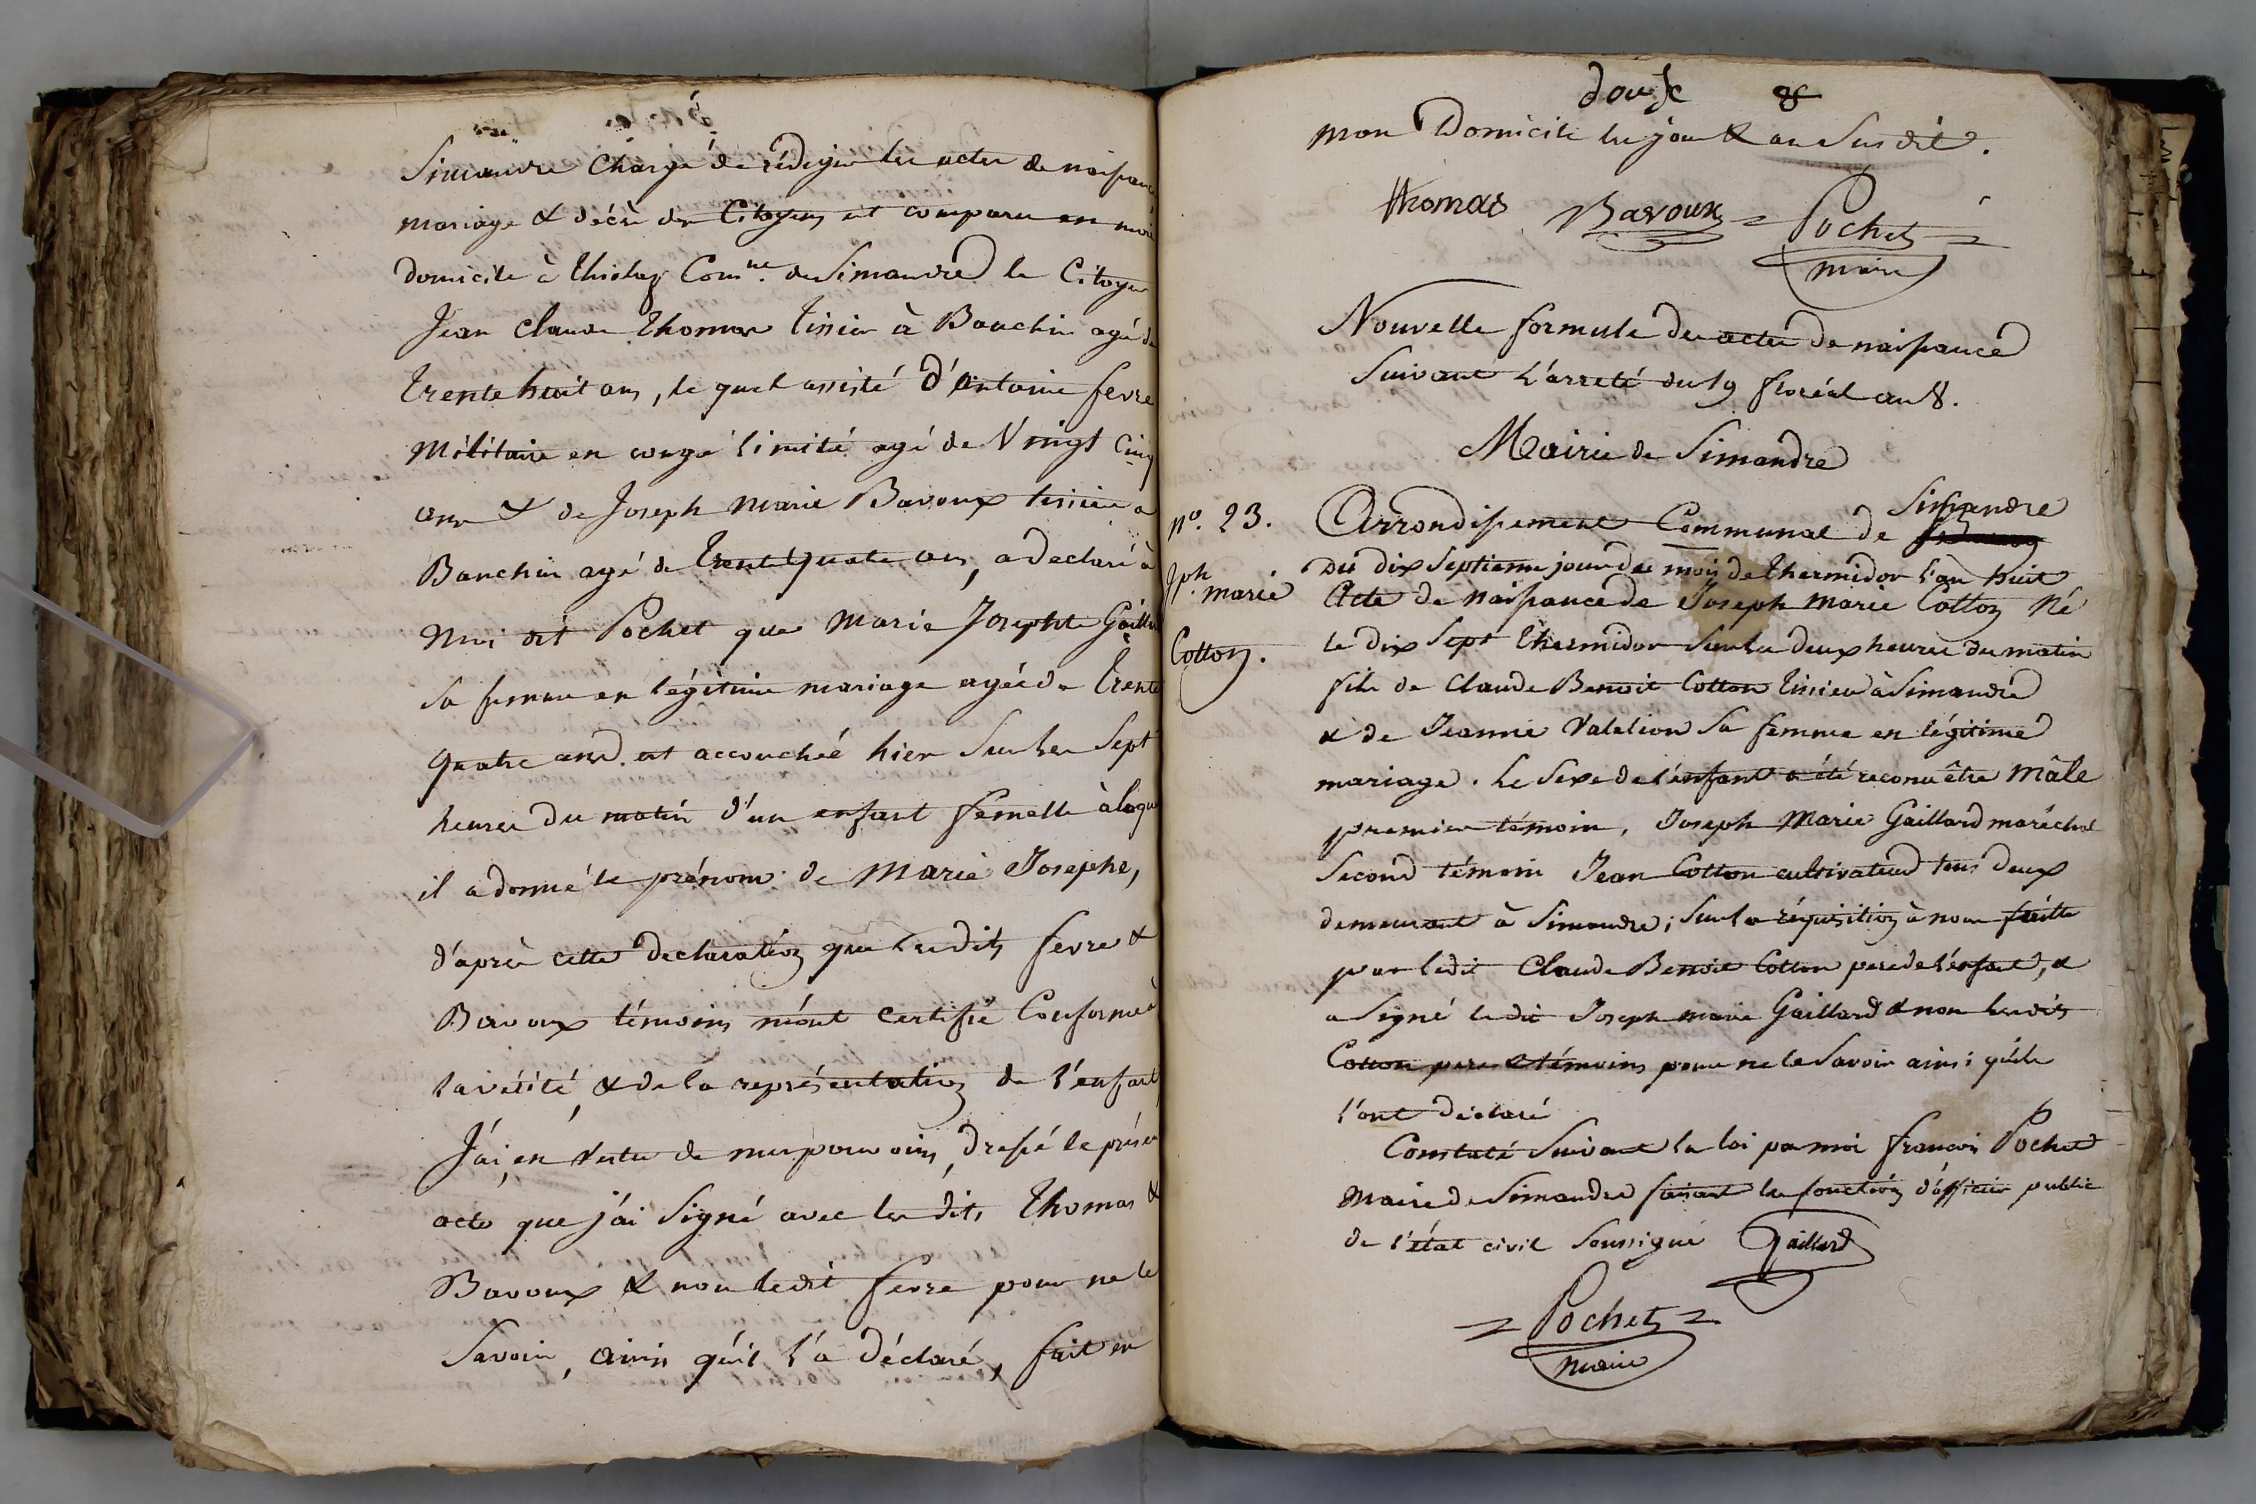 Simandre Chargé de rédiger les actes de naissance
mariage & décès des Citoyens est comparu en mon
domicile à Thioley Com.ne de Simandre le Citoyen
Jean Claude Thomas tissier à Banchin agé de
trente huit ans, le quel assisté d'antoine fevre
Militaire en congé limité agé de Vingt Cinq
ans & de Joseph Marie Bavoux tissier a
Banchin agé de trente quatre ans, a declaré à
Moi dit Pochet que Marie Josephte Gaillard
sa femme en légitime mariage agée de trente
quatre ans est accouchée hier sur les sept
heures du matin d'un enfant femelle à laquelle
il a donné le prénom de Marie Josephe,
d'après cette declaration que lesdits fevre &
Bavoux témoins m'ont certifié Conforme à
la vérité, & de la représentation de l'enfant,
J'ai, en vertu de mes pouvoirs, dressé le présent
acte que j'ai signé avec lesdits Thomas &
Bavoux & non ledit fevre pour ne le
savoir, ainsi qu'il l'a déclaré, fait en
douze 8
mon Domicile les jour & an Susdit.
thomas Bavoux Pochet
maire
Nouvelle formule des actes de naissance
Suivant l'arreté du 19 floréal an 8.
Mairie de Simandre
n.º 23.
Jph
marie
Cotton.
Simandre
Arrondissement Communal de
Du dix septieme jour du mois de thermidor l'an huit
Acte de naissance de Joseph Marie Cotton Né
le dix sept thermidor sur les deux heures du matin
fils de Claude Benoit Cotton tissier à Simandre
& de Jeanne Valelion sa femme en légitime
mariage. Le sexe de l'enfant a été reconu être Mâle
premier témoin, Joseph Marie Gaillard maréchal
Second témoin Jean Cotton cultivateur tous deux
demeurant à Simandre; sur la réquisition à nous faitte
par ledit Claude Benoit Cotton pere de l'enfant, &
a signé ledit Joseph marie Gaillard & non lesdits
Cotton pere & témoins pour ne le savoir ainsi qu'ils
l'ont déclaré
Constaté suivant la loi par moi françois Pochet
Maire de Simandre faisant les fonctions d'officier public
de l'état civil soussigné Gaillard
Pochet
maire